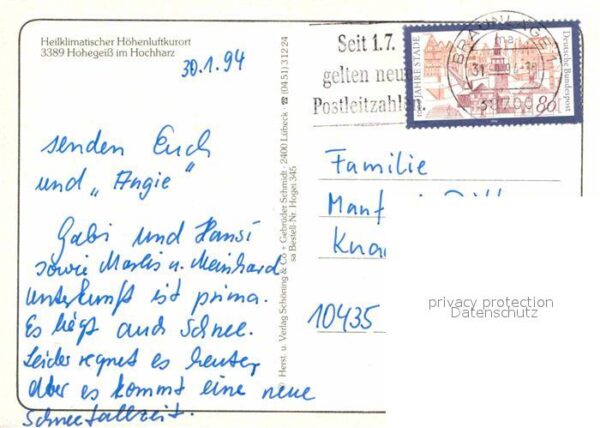 Heilklimatischer Höhenluftkurort
3389 Hohegeiß im Hochharz
30.1.94
senden Euch
und „Angie"
Gabi und Hansi
sowie Marlis u. Meinhard
Unterkunft ist prima.
Es liegt auch Schnee.
Leider regnet es heute,
aber es kommt eine neue
Schneefallzeit.
Herst. u. Verlag Schöning & Co + Gebrüder Schmidt · 2400 Lübeck · ☎ (04 51) 3 12 24
sa Bestell-Nr. Hogei 345
Seit 1.7.
gelten neue
Postleitzahlen.
BRAUNLAGE 1
ma
31
38700
JAHRE STADE
Deutsche Bundespost
80
Familie
Manf
Kna
10435
privacy protection
Datenschutz